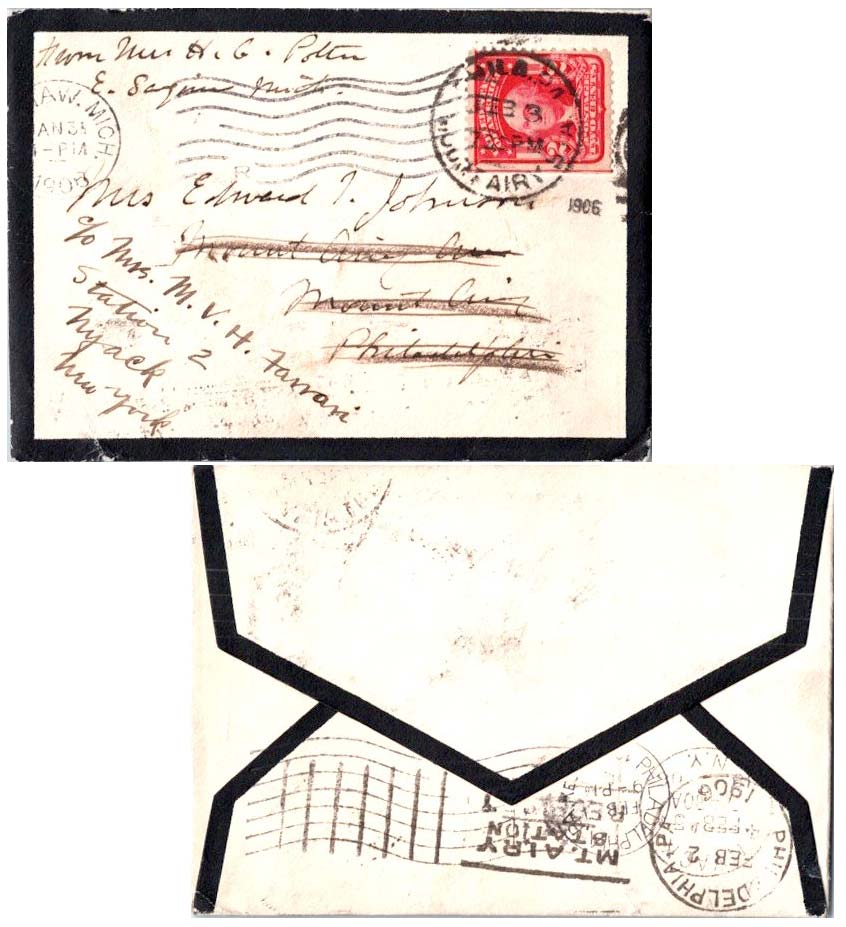 from Mrs H. C. Potter
E. Saginaw Mich.
AW. MICH.
JAN 31
-PM
1906
PHILA. PA.
FEB 3
PM
MOUNT AIRY STA.
1906
Mrs Edward I. Johnson
Mount Airy Ave
Mount Airy
Philadelphia
c/o Mrs. M. V. H. Farrari
Station 2
Nyack
New York
MT. AIRY
STATION
PHILADELPHIA
FEB
N.Y.
1906
FEB 5
PHILADELPHIA, PA.
FEB 2